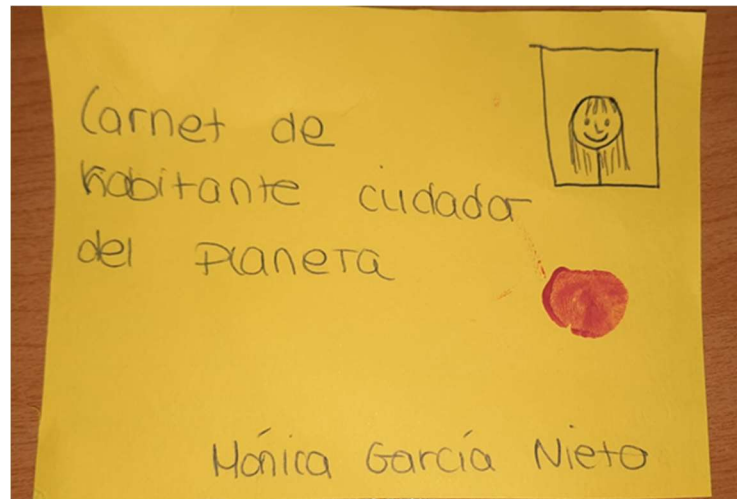 Carnet de
habitante cuidador
del planeta
Mónica García Nieto